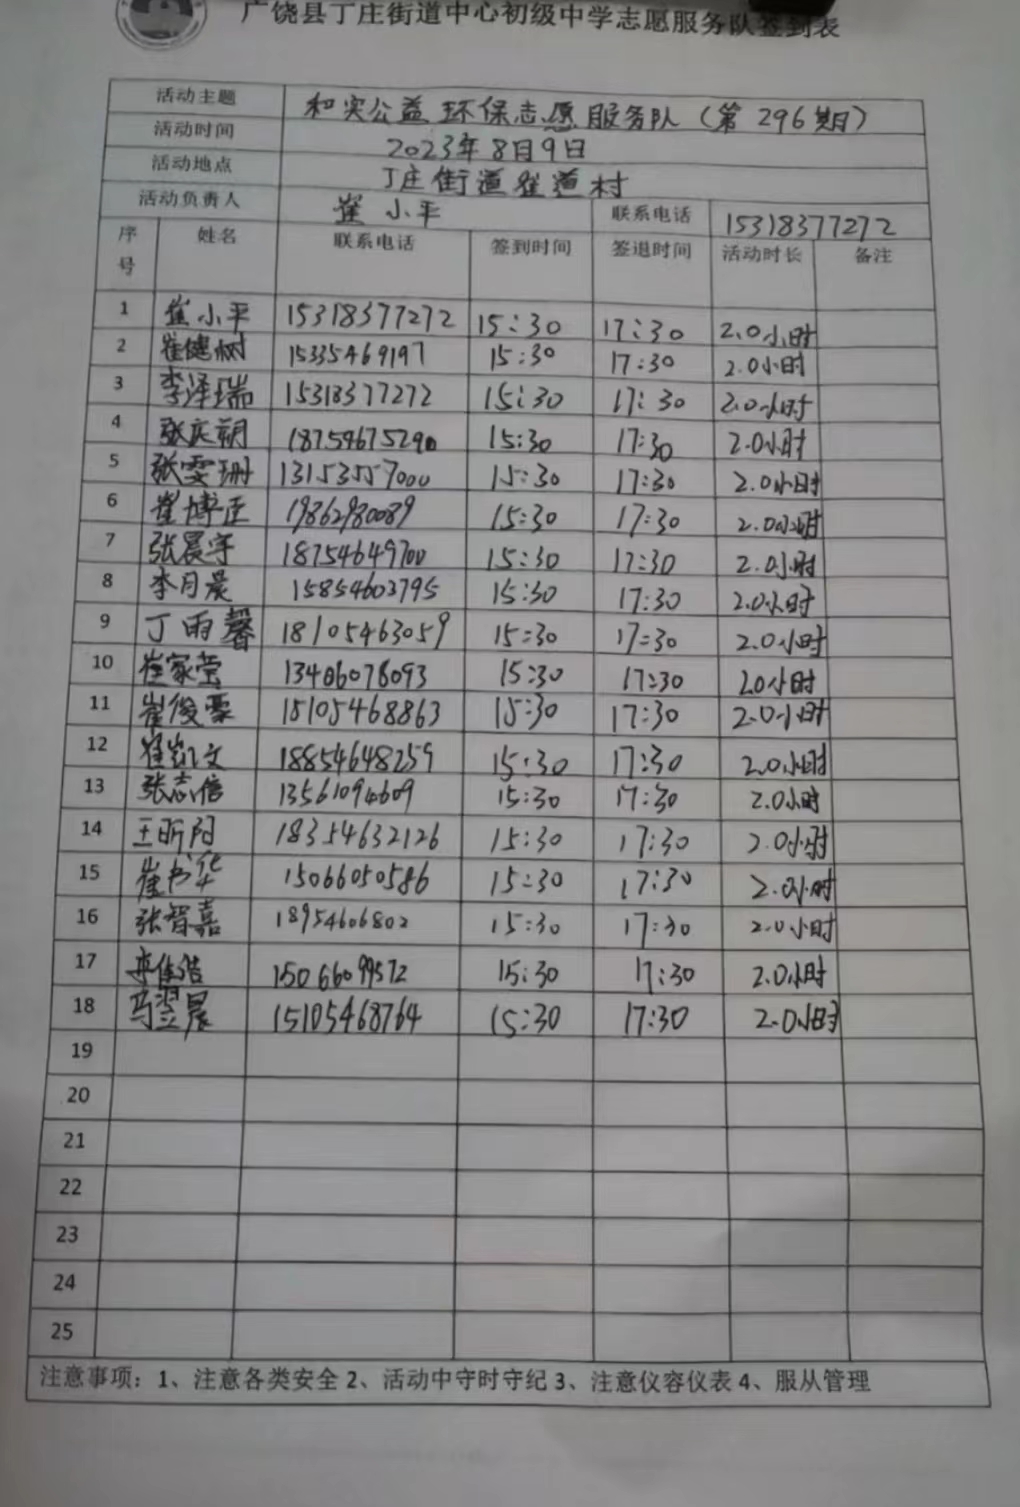 广饶县丁庄街道中心初级中学志愿服务队签到表
活动主题 和实公益 环保志愿服务队（第296期）
活动时间 2023年8月9日
活动地点 丁庄街道崔道村
活动负责人 崔小平 联系电话 15318377272
序号 姓名 联系电话 签到时间 签退时间 活动时长 备注
1 崔小平 15318377272 15:30 17:30 2.0小时
2 崔健树 15335469197 15:30 17:30 2.0小时
3 李泽瑞 15318377272 15:30 17:30 2.0小时
4 张庆朔 18754675290 15:30 17:30 2.0小时
5 张雯珊 13153557000 15:30 17:30 2.0小时
6 崔博正 19862980089 15:30 17:30 2.0小时
7 张晨宇 18754649700 15:30 17:30 2.0小时
8 李月晨 15854603795 15:30 17:30 2.0小时
9 丁雨馨 18105463059 15:30 17:30 2.0小时
10 崔家莹 13406078093 15:30 17:30 2.0小时
11 崔俊豪 15105468863 15:30 17:30 2.0小时
12 崔凯文 18854648259 15:30 17:30 2.0小时
13 张志信 13561094609 15:30 17:30 2.0小时
14 王昕阳 18354632126 15:30 17:30 2.0小时
15 崔书华 15066050586 15:30 17:30 2.0小时
16 张智嘉 18954606802 15:30 17:30 2.0小时
17 李佳浩 15066099572 15:30 17:30 2.0小时
18 马翌晨 15105468764 15:30 17:30 2.0小时
19
20
21
22
23
24
25
注意事项：1、注意各类安全 2、活动中守时守纪 3、注意仪容仪表 4、服从管理